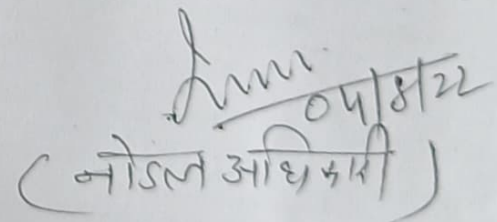 04/8/22
(नोडल अधिकारी)